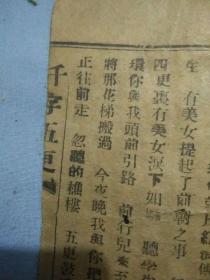 生 有美女提起了前之事
四更裏有美女淚下如 聽學
環你與我頭前引路 前行兒來至
將那花梯搬過 今夜晚我與你把
正往前走 忽聽的樵樓 五更鼓
千字五更